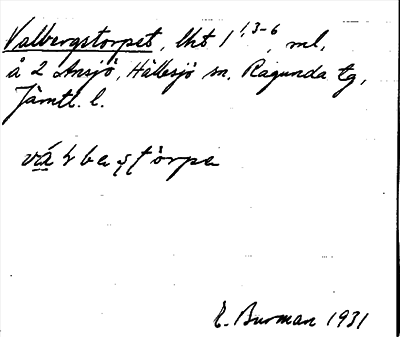 Valbergstorpet, lht 1 1,3-6, ml,
å 2 Ansjö, Hällesjö sn, Ragunda tg,
Jämtl. l.
E. Burman 1931